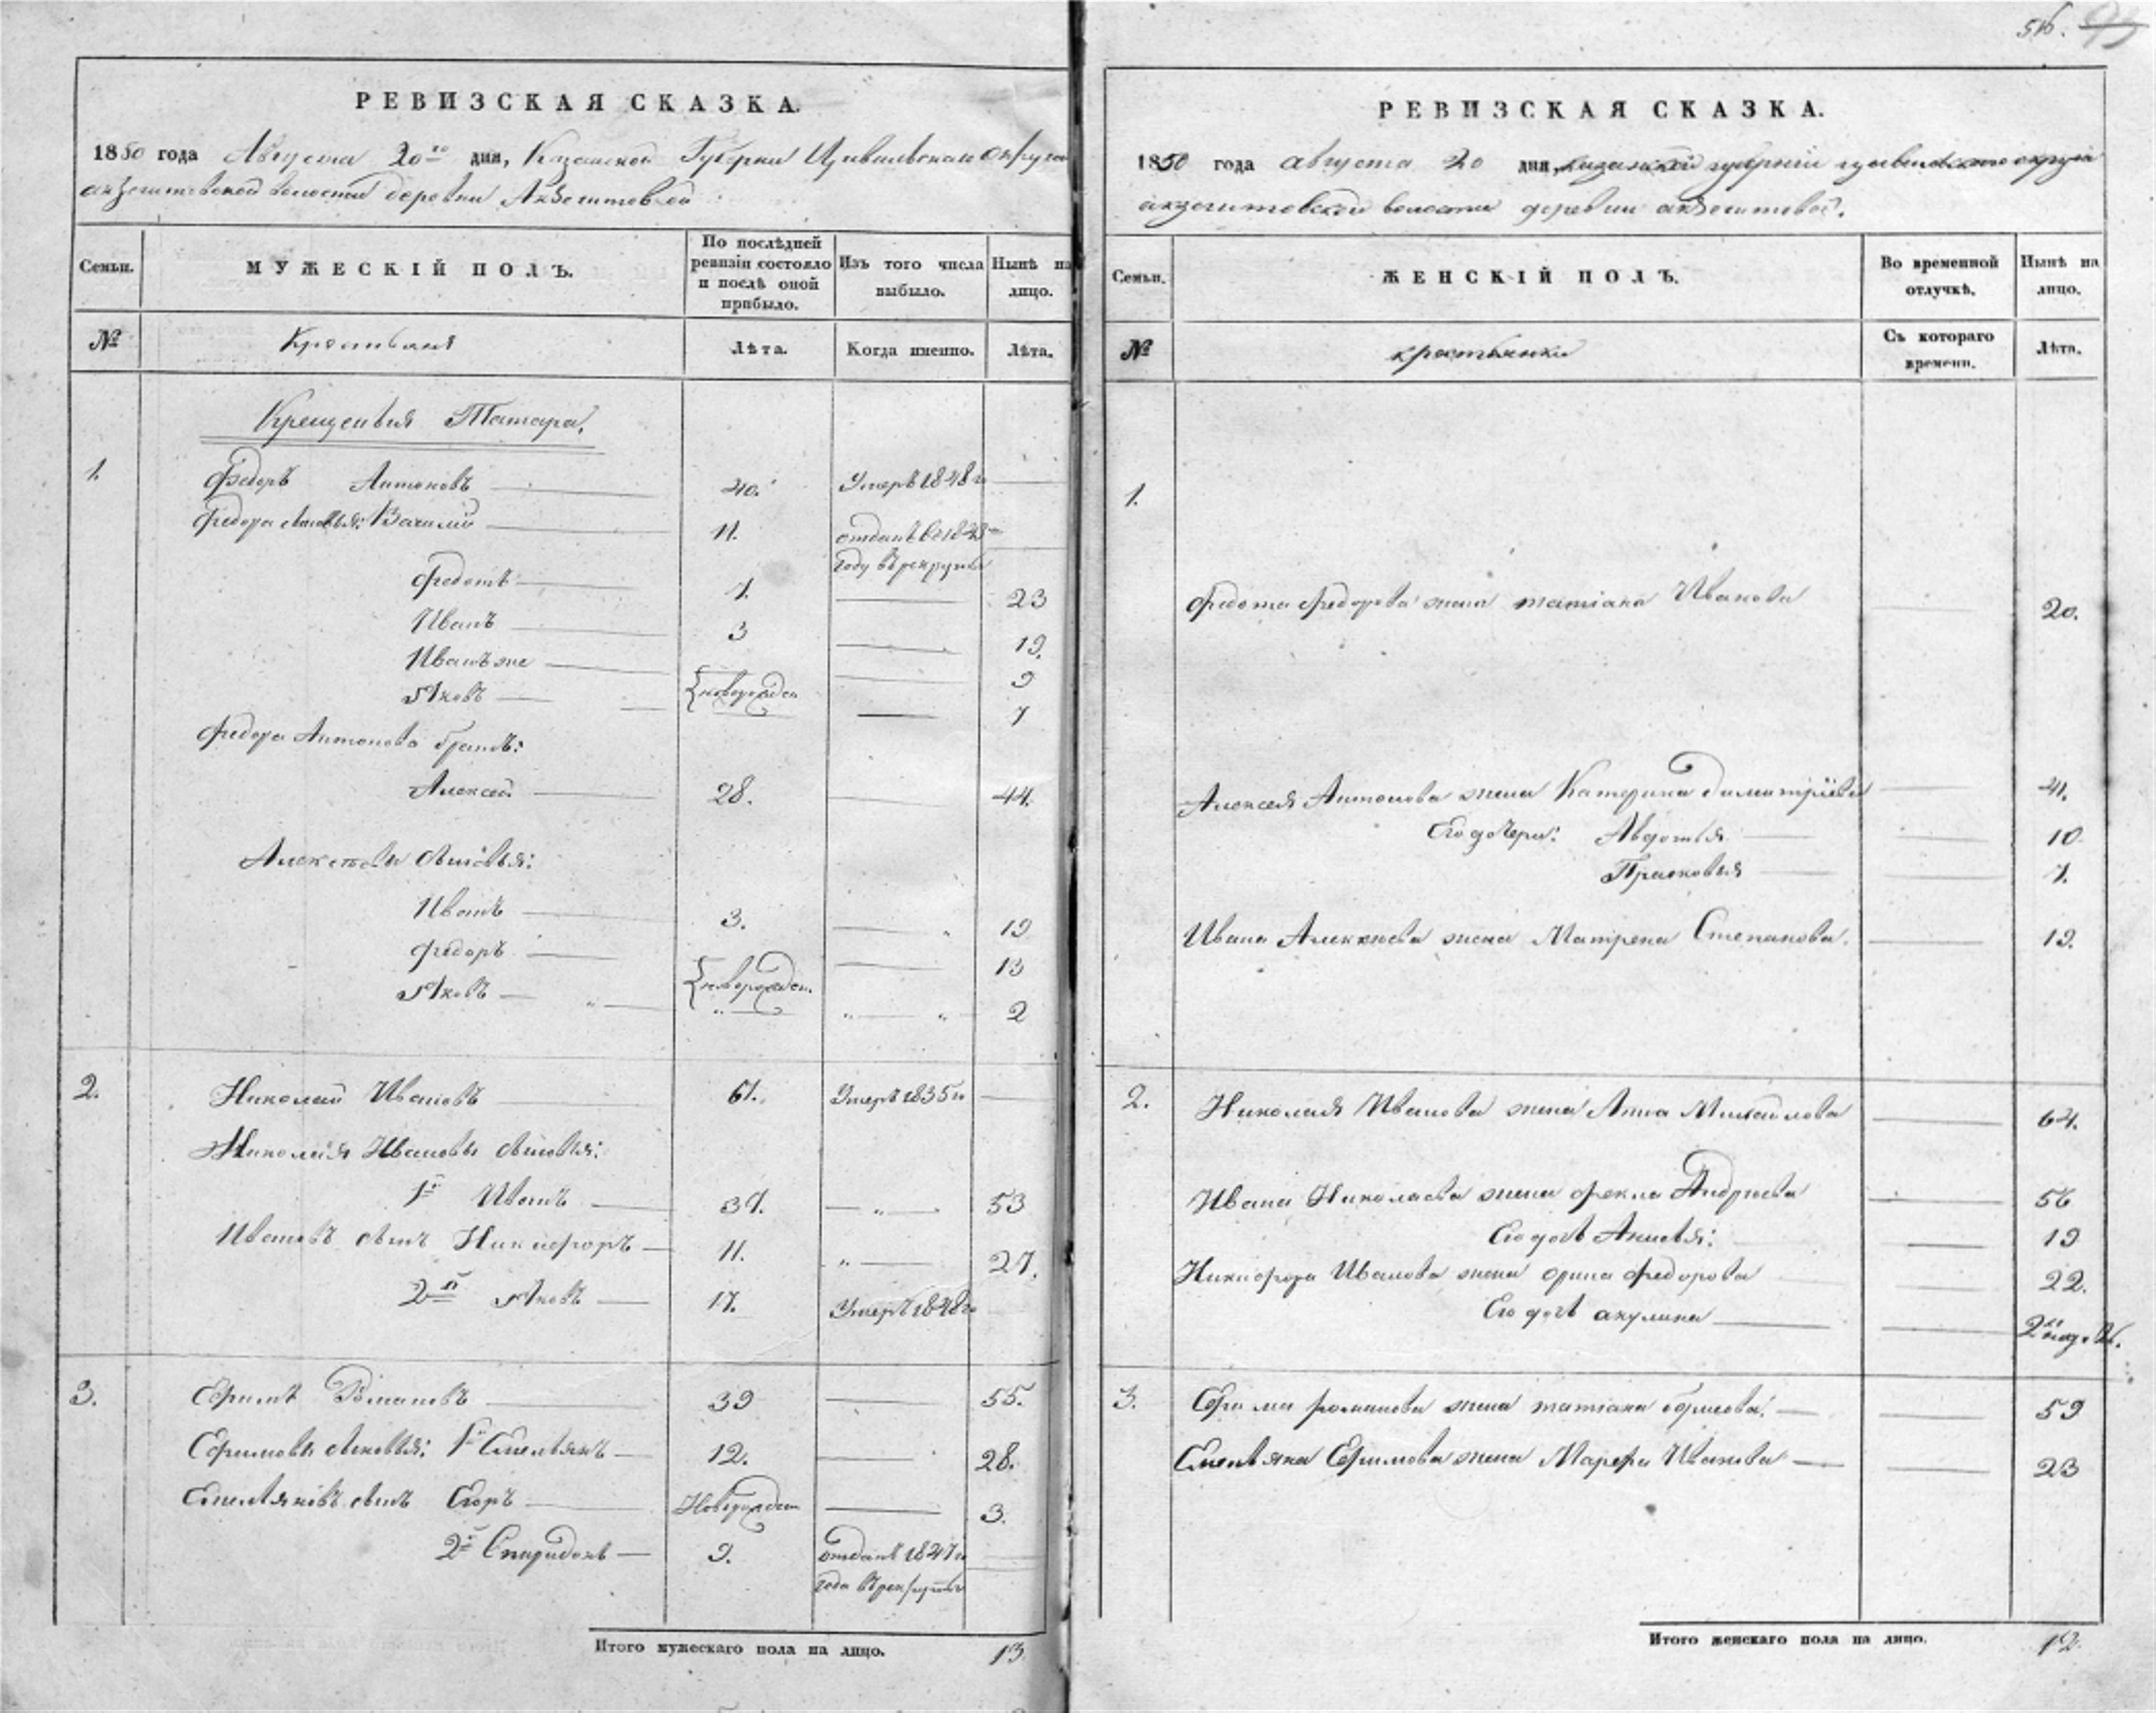 516. 93
РЕВИЗСКАЯ СКАЗКА.
1850 года Августа 20го дня, Казанской Губернии Цивильскаго округа
акзегитовской волости деревни Акзегитовой
Семьи.
МУЖЕСКІЙ ПОЛЪ.
По послѣдней ревизіи состояло и послѣ оной прибыло.
Изъ того числа выбыло.
Нынѣ на лицо.
№
Крестьяня
Лѣта.
Когда именно.
Лѣта.
Крещеныя Татара.
1. Федоръ Антоновъ 40. Умеръ 1848 г
Федора сыновья: Василий 11. отданъ в 1843
году въ рекруты
Федотъ 7. 23
Иванъ 3 19.
Иванъ же 9
Яковъ новорожден 7
Федора Антонова братъ:
Алексей 28. 44.
Алексеевы сыновья:
Иванъ 3. 19
Федоръ 13
Яковъ новорожден. 2
2. Николай Ивановъ 61. Умеръ 1835 г
Николая Ивановы сыновья:
1й Иванъ 37. 53
Ивановъ сынъ Никифоръ 11. 27.
2й Яковъ 17. Умеръ 1848 г
3. Ефимъ Романовъ 39 55.
Ефимовы сыновья: 1й Емельянъ 12. 28.
Емельяновъ сынъ Егоръ Новорожден 3.
2й Спиридонъ 9. отданъ 1847 г
года въ рекруты
Итого мужескаго пола на лицо. 13
РЕВИЗСКАЯ СКАЗКА.
1850 года августа 20 дня, казанской губерніи цивильскаго округа
акзегитовской волости деревни акзегитовой.
Семьи.
ЖЕНСКІЙ ПОЛЪ.
Во временной отлучкѣ.
Нынѣ на лицо.
№
крестьянки
Съ котораго времени.
Лѣта.
1.
Федота Федорова жена татіана Иванова 20.
Алексея Антонова жена Катерина Димитріева 41.
Его дочери: Авдотья 10
Прасковья 7.
Ивана Алексеева жена Матрена Степанова. 19.
2. Николая Иванова жена Анна Михайлова 64.
Ивана Николаева жена фекла Андреева 56
Его дочь Анисья: 19
Никифора Иванова жена орина Федорова 22.
Его дочь акулина
3. Ефима романова жена татіана борисова. 59
Емельяна Ефимова жена Марфа Иванова 23
Итого женскаго пола на лицо. 12.